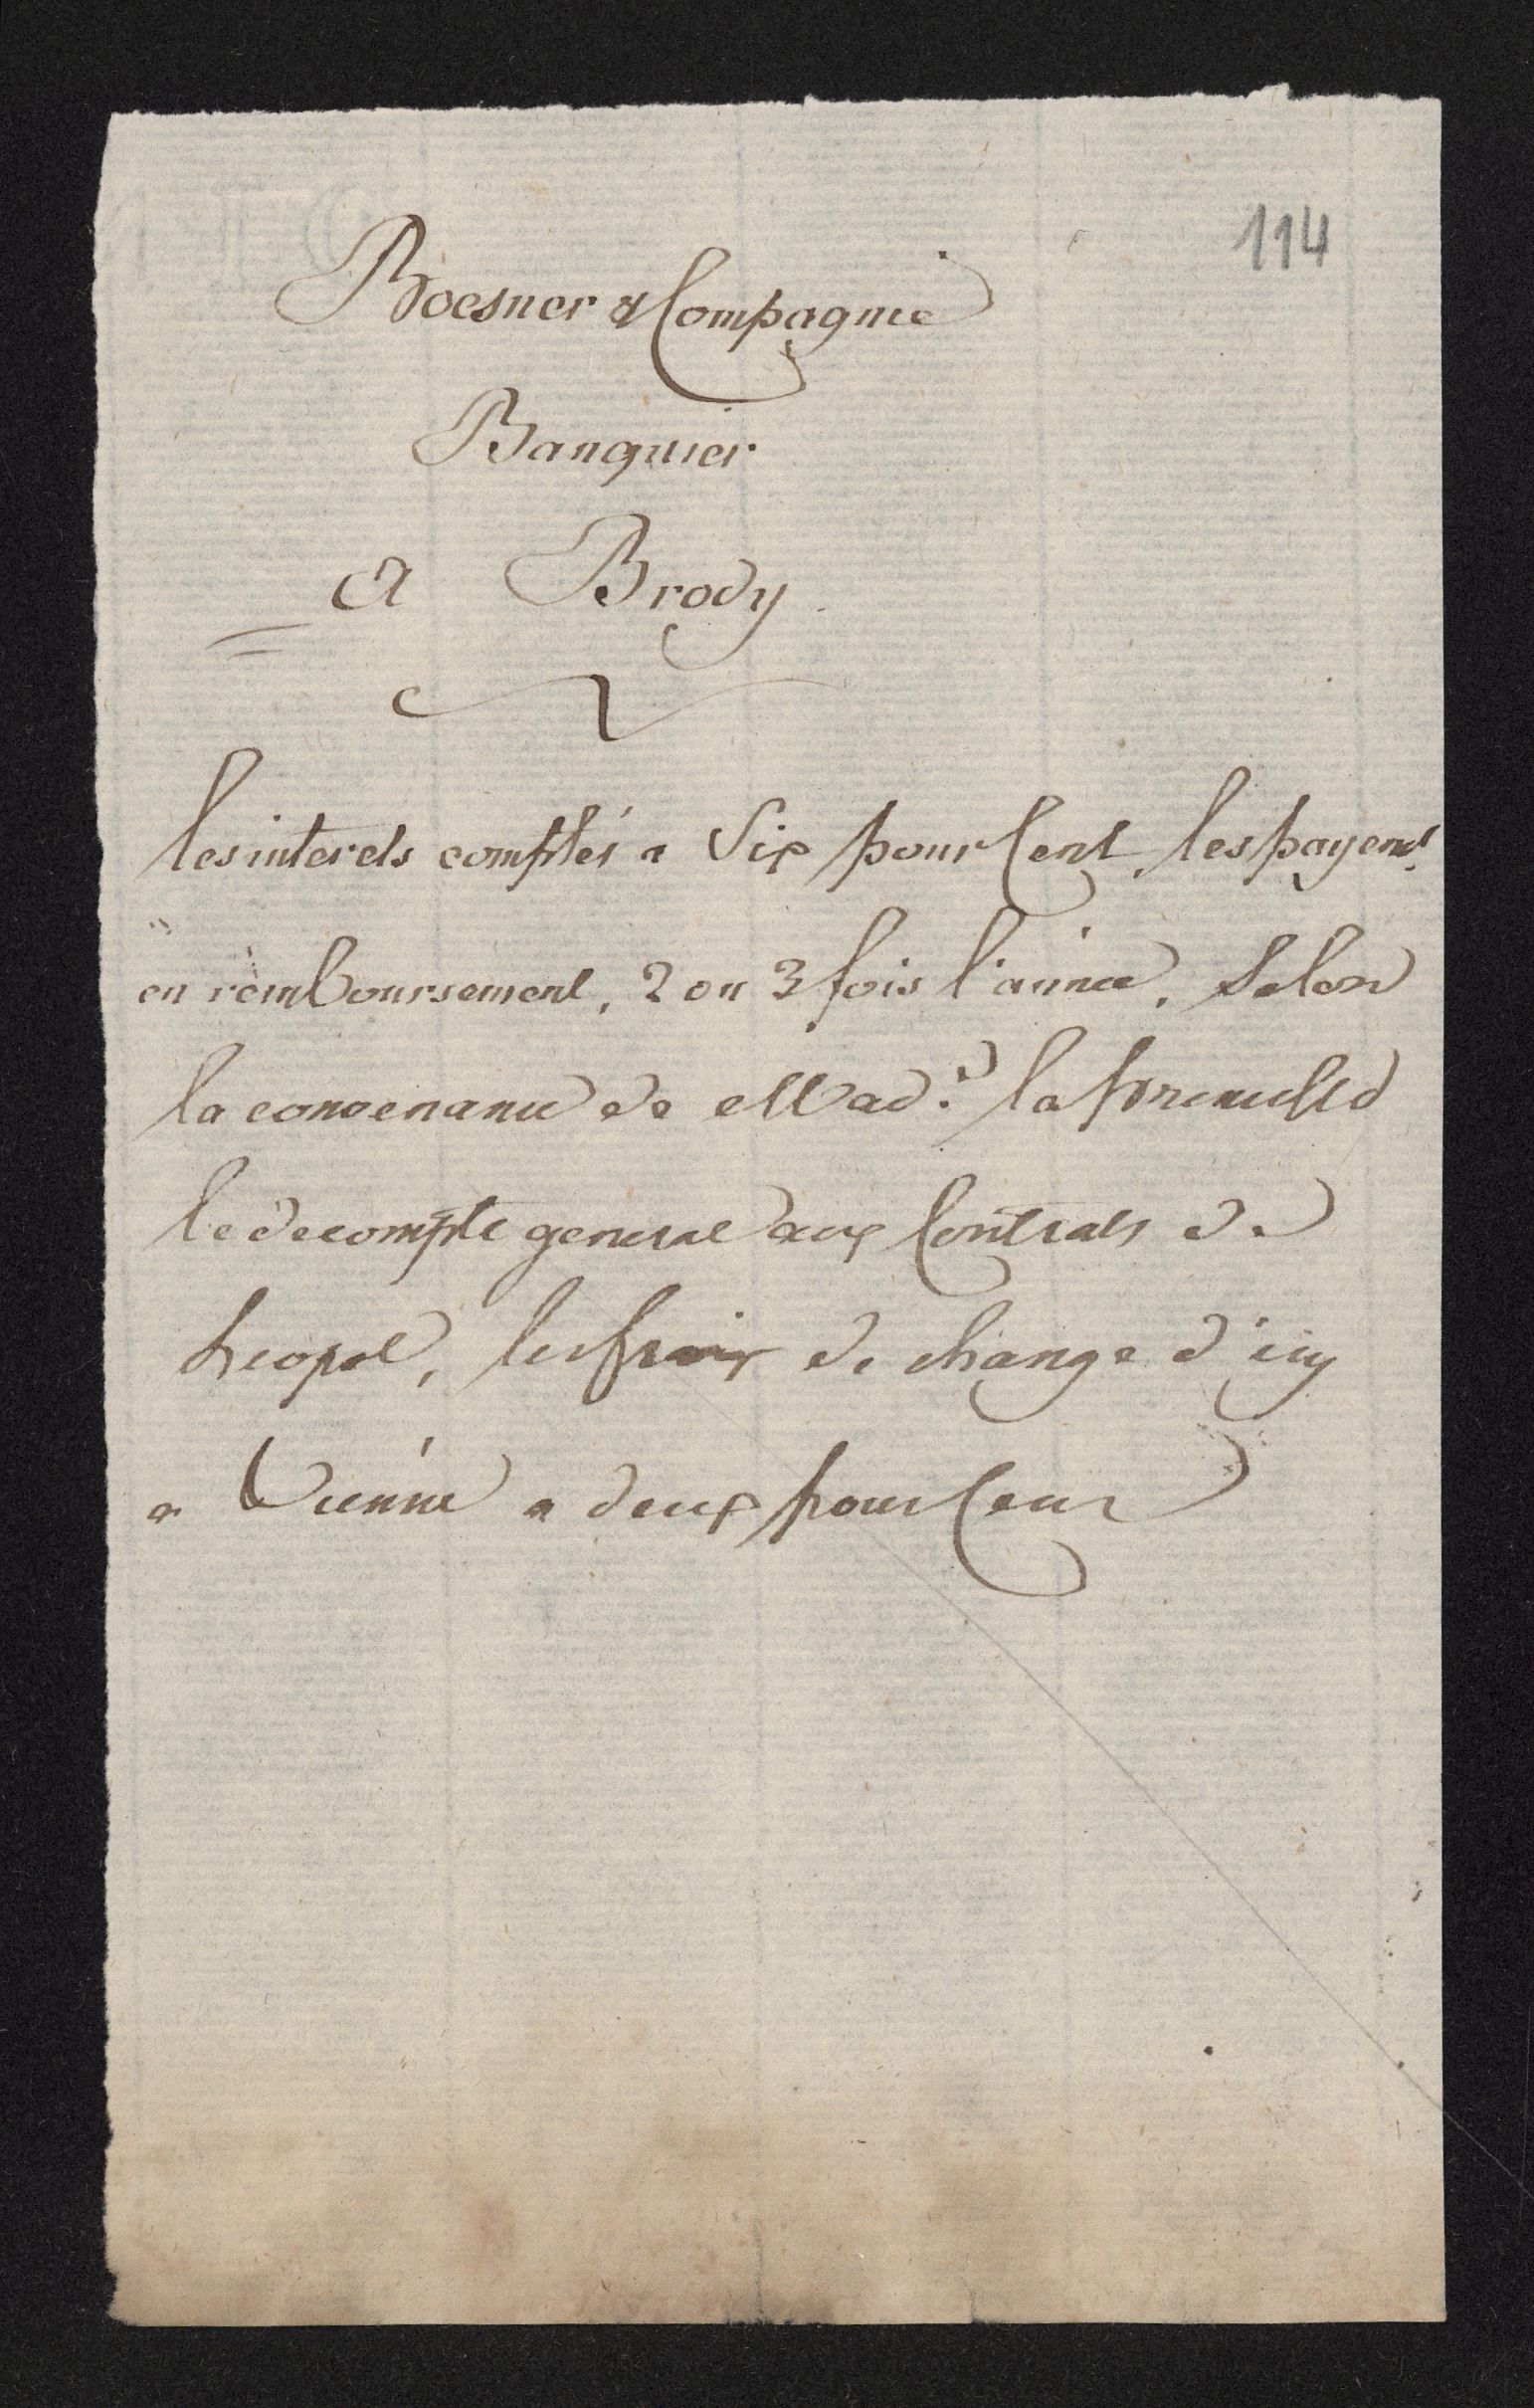 114
Boesner & Compagnie
Banquier
a Brody
les interets comptés a Six pour Cent, les payemt
en remboursement, 2 ou 3 fois l'année, Selon
la convenance de Made la
le decompte general aux Contrats de
Leopol, les frais de change d'icy
a Vienne a deux pour Cent